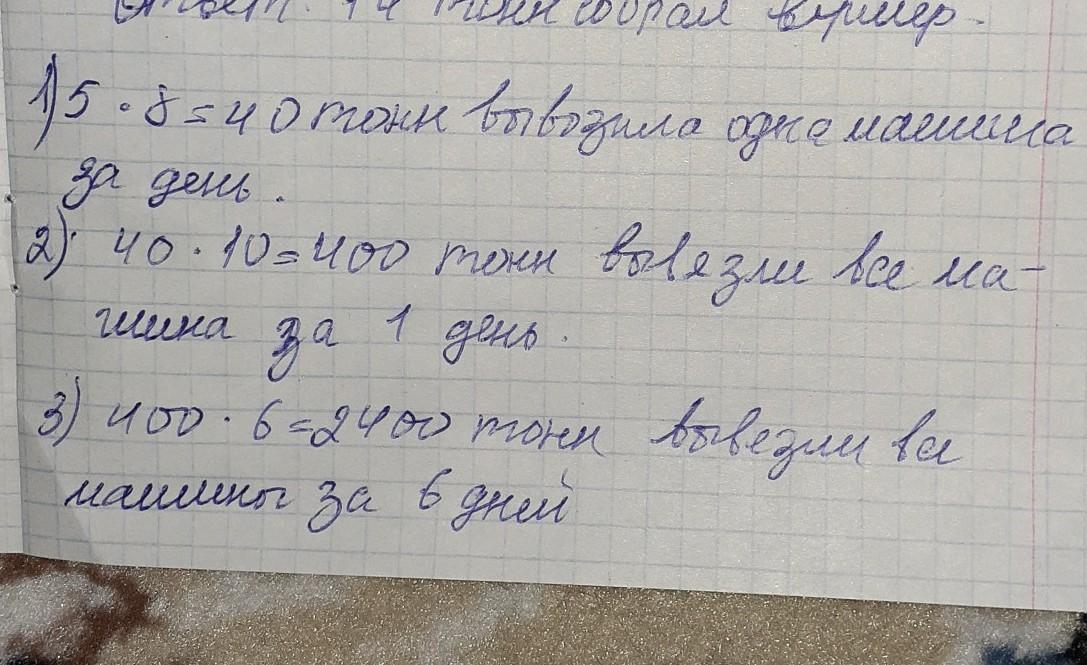 Ответ: 14 тонн собрал фермер.
1) 5 · 8 = 40 тонн вывозила одна машина
за день.
2) 40 · 10 = 400 тонн вывязли все ма-
шина за 1 день.
3) 400 · 6 = 2400 тонн вывезли все
машины за 6 дней